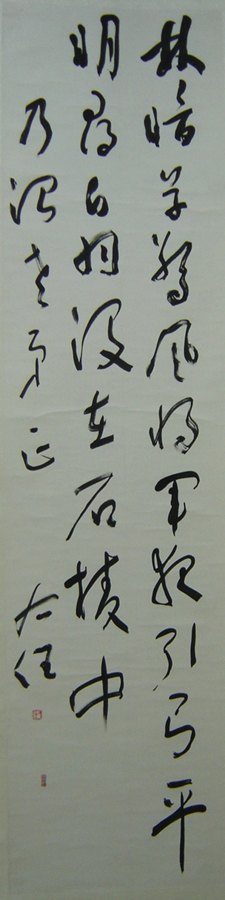 林暗草驚風將軍夜引弓平
明尋白羽沒在石棱中
乃老弟正 右任